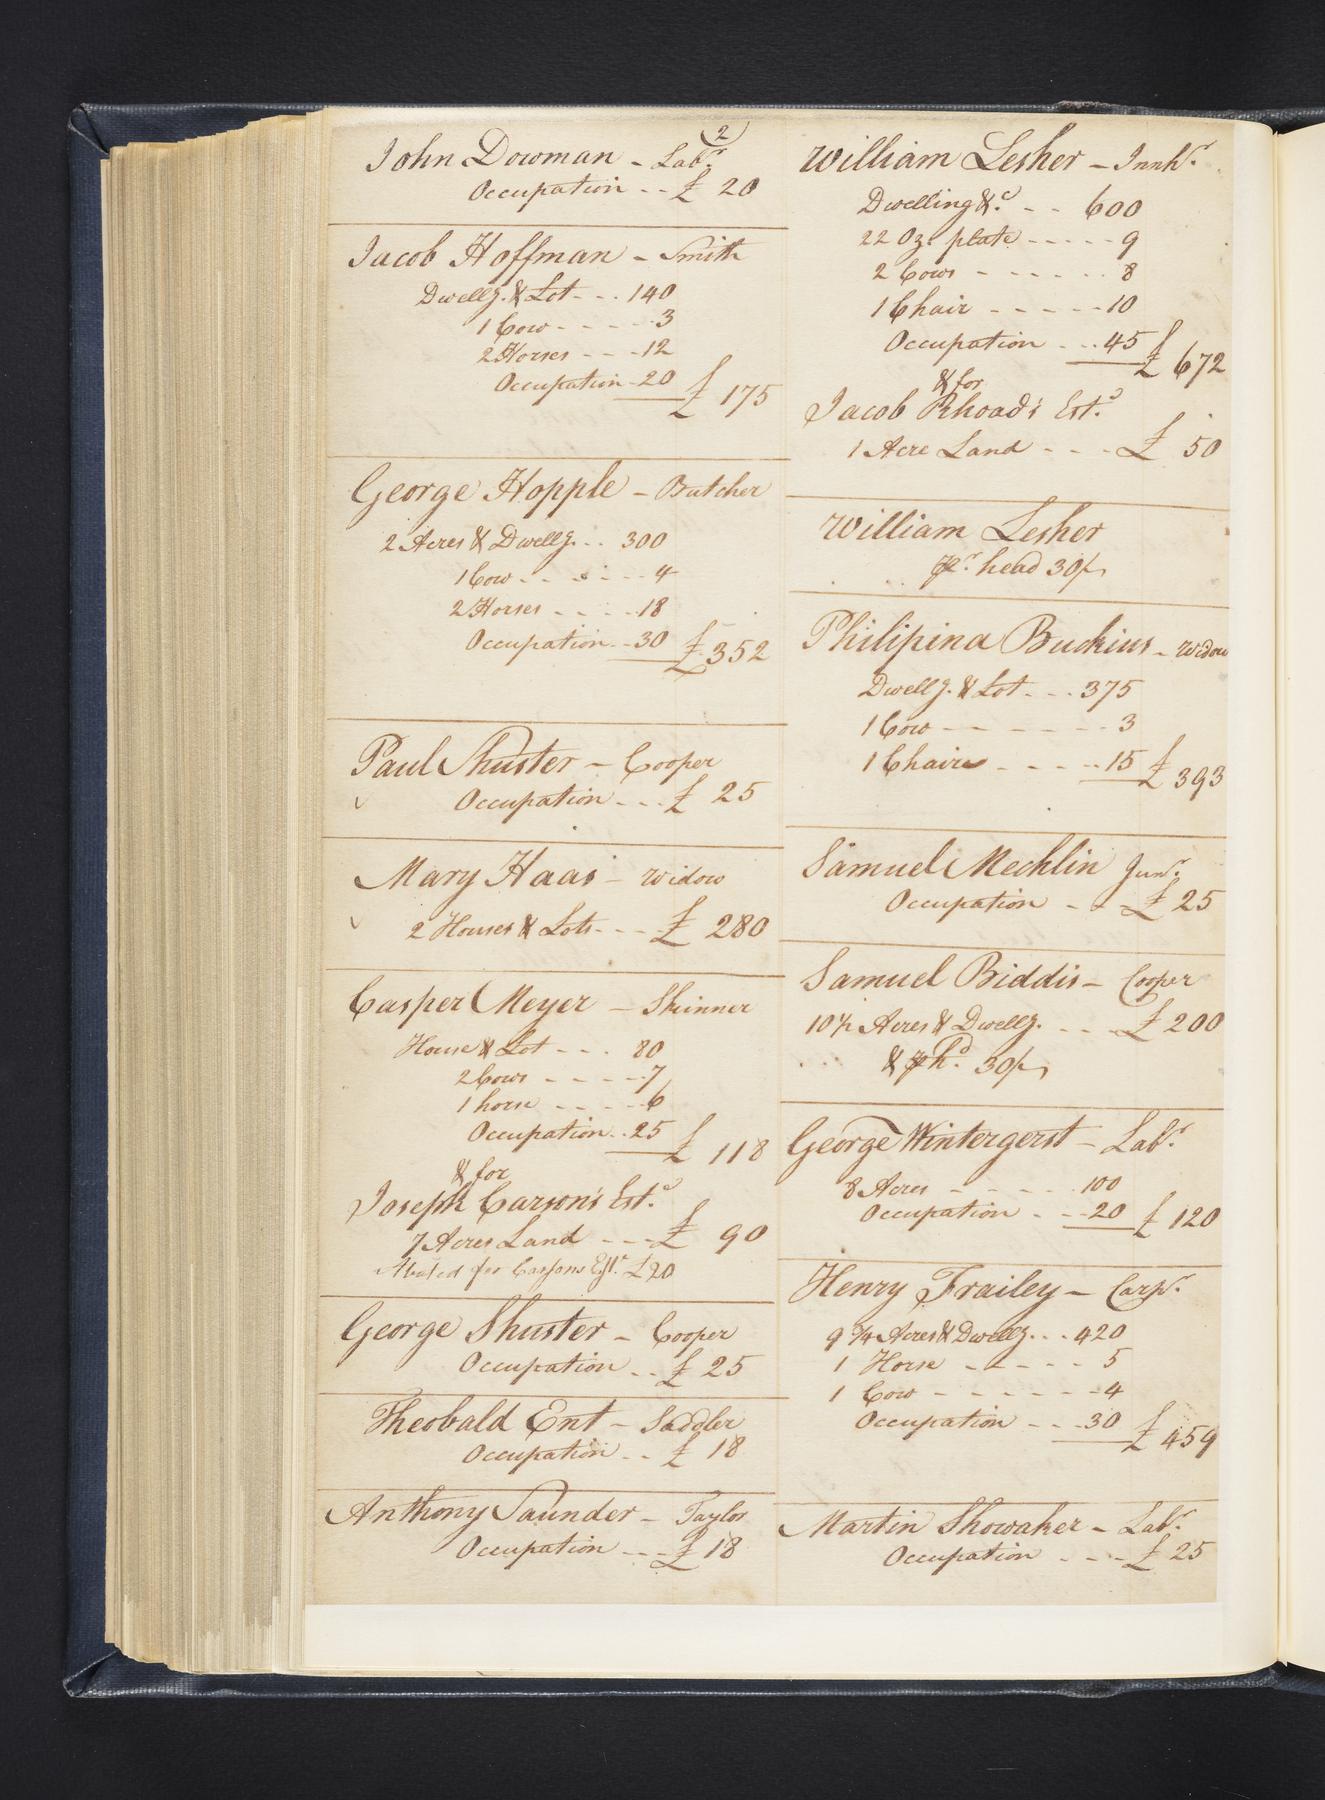 2
John Dowman - Labr.
Occupation -- £ 20
Jacob Hoffman - Smith
Dwellg. & Lot - - . 140
1 Cow - - - - - 3
2 Horses - - - - 12
Occupation - 20 £ 175
George Hopple - Butcher
2 Acres & Dwellg. . . 300
1 Cow - - - - - - 4
2 Horses - - - - . 18
Occupation - - 30 £ 352
Paul Shuster - Cooper
Occupation - - . £ 25
Mary Haas - Widow
2 Houses & Lots - - - £ 280
Casper Meyer - Skinner
House & Lot - - . 80
2 Cows - - - - - 7
1 horse - - - - - 6
Occupation . . 25 £ 118
& for
Joseph Carson's Este.
7 Acres Land - - - £ 90
Abated for Carsons Este. £20
George Shuster - Cooper
Occupation . . £ 25
Theobald Ent - Saddler
Occupation . . £ 18
Anthony Saunder - Taylor
Occupation - - - £ 18
William Lesher - Innkr.
Dwelling &c. - - 600
22 Oz. plate - - - - - 9
2 Cows - - - - . . 8
1 Chair - - - - - - 10
Occupation - . . 45 £ 672
& for
Jacob Rhoad's Este.
1 Acre Land - - - £ 50
William Lesher
pr. head 30/-
Philipina Buckius - Widow
Dwellg. & Lot . - . 375
1 Cow - - - - - - - 3
1 Chair - . - - . . 15 £ 393
Samuel Mechlin Junr.
Occupation - - £ 25
Samuel Biddis - Cooper
10 1/2 Acres & Dwellg. - - - £ 200
& p hd. 30/-
George Wintergerst - Labr.
8 Acres - - - - . . 100
Occupation - - - 20 £ 120
Henry Frailey - Carpr.
9 3/4 Acres & Dwellg. . . 420
1 Horse - - - - - 5
1 Cow - - - - - - - 4
Occupation - - - 30 £ 459
Martin Showaker - Labr.
Occupation - - - £ 25